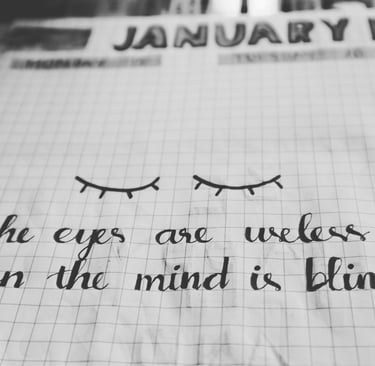 JANUARY
MONDAY TUESDAY
he eyes are useless
n the mind is blin